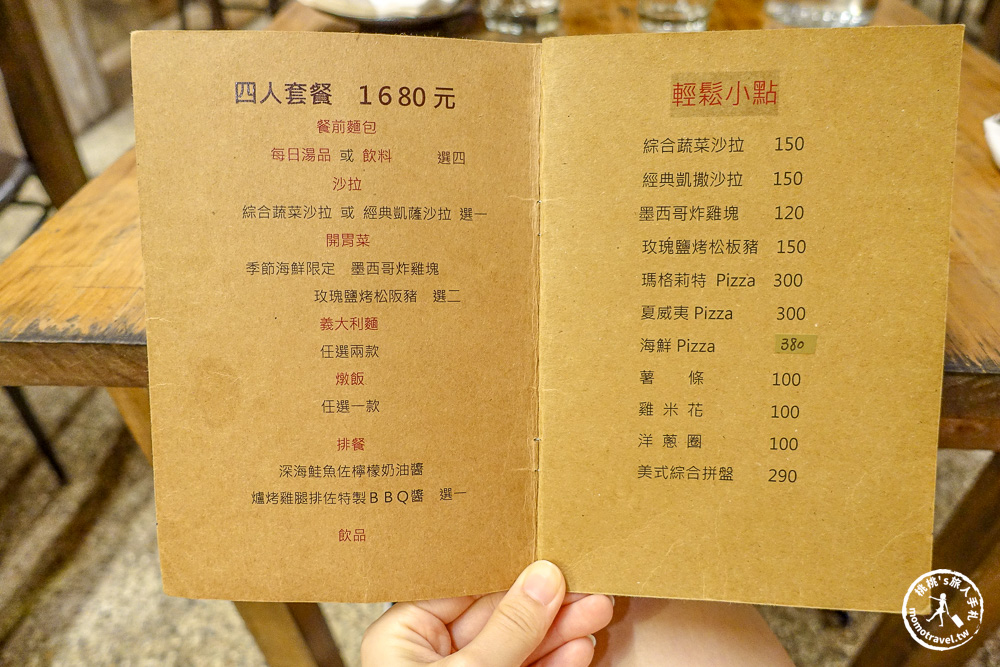 四人套餐 1680元
餐前麵包
每日湯品 或 飲料 選四
沙拉
綜合蔬菜沙拉 或 經典凱薩沙拉 選一
開胃菜
季節海鮮限定 墨西哥炸雞塊
玫瑰鹽烤松阪豬 選二
義大利麵
任選兩款
燉飯
任選一款
排餐
深海鮭魚佐檸檬奶油醬
爐烤雞腿排佐特製BBQ醬 選一
飲品
輕鬆小點
綜合蔬菜沙拉 150
經典凱撒沙拉 150
墨西哥炸雞塊 120
玫瑰鹽烤松板豬 150
瑪格莉特 Pizza 300
夏威夷 Pizza 300
海鮮 Pizza 380
薯條 100
雞米花 100
洋蔥圈 100
美式綜合拼盤 290
桃桃's旅人手札
momotravel.tw